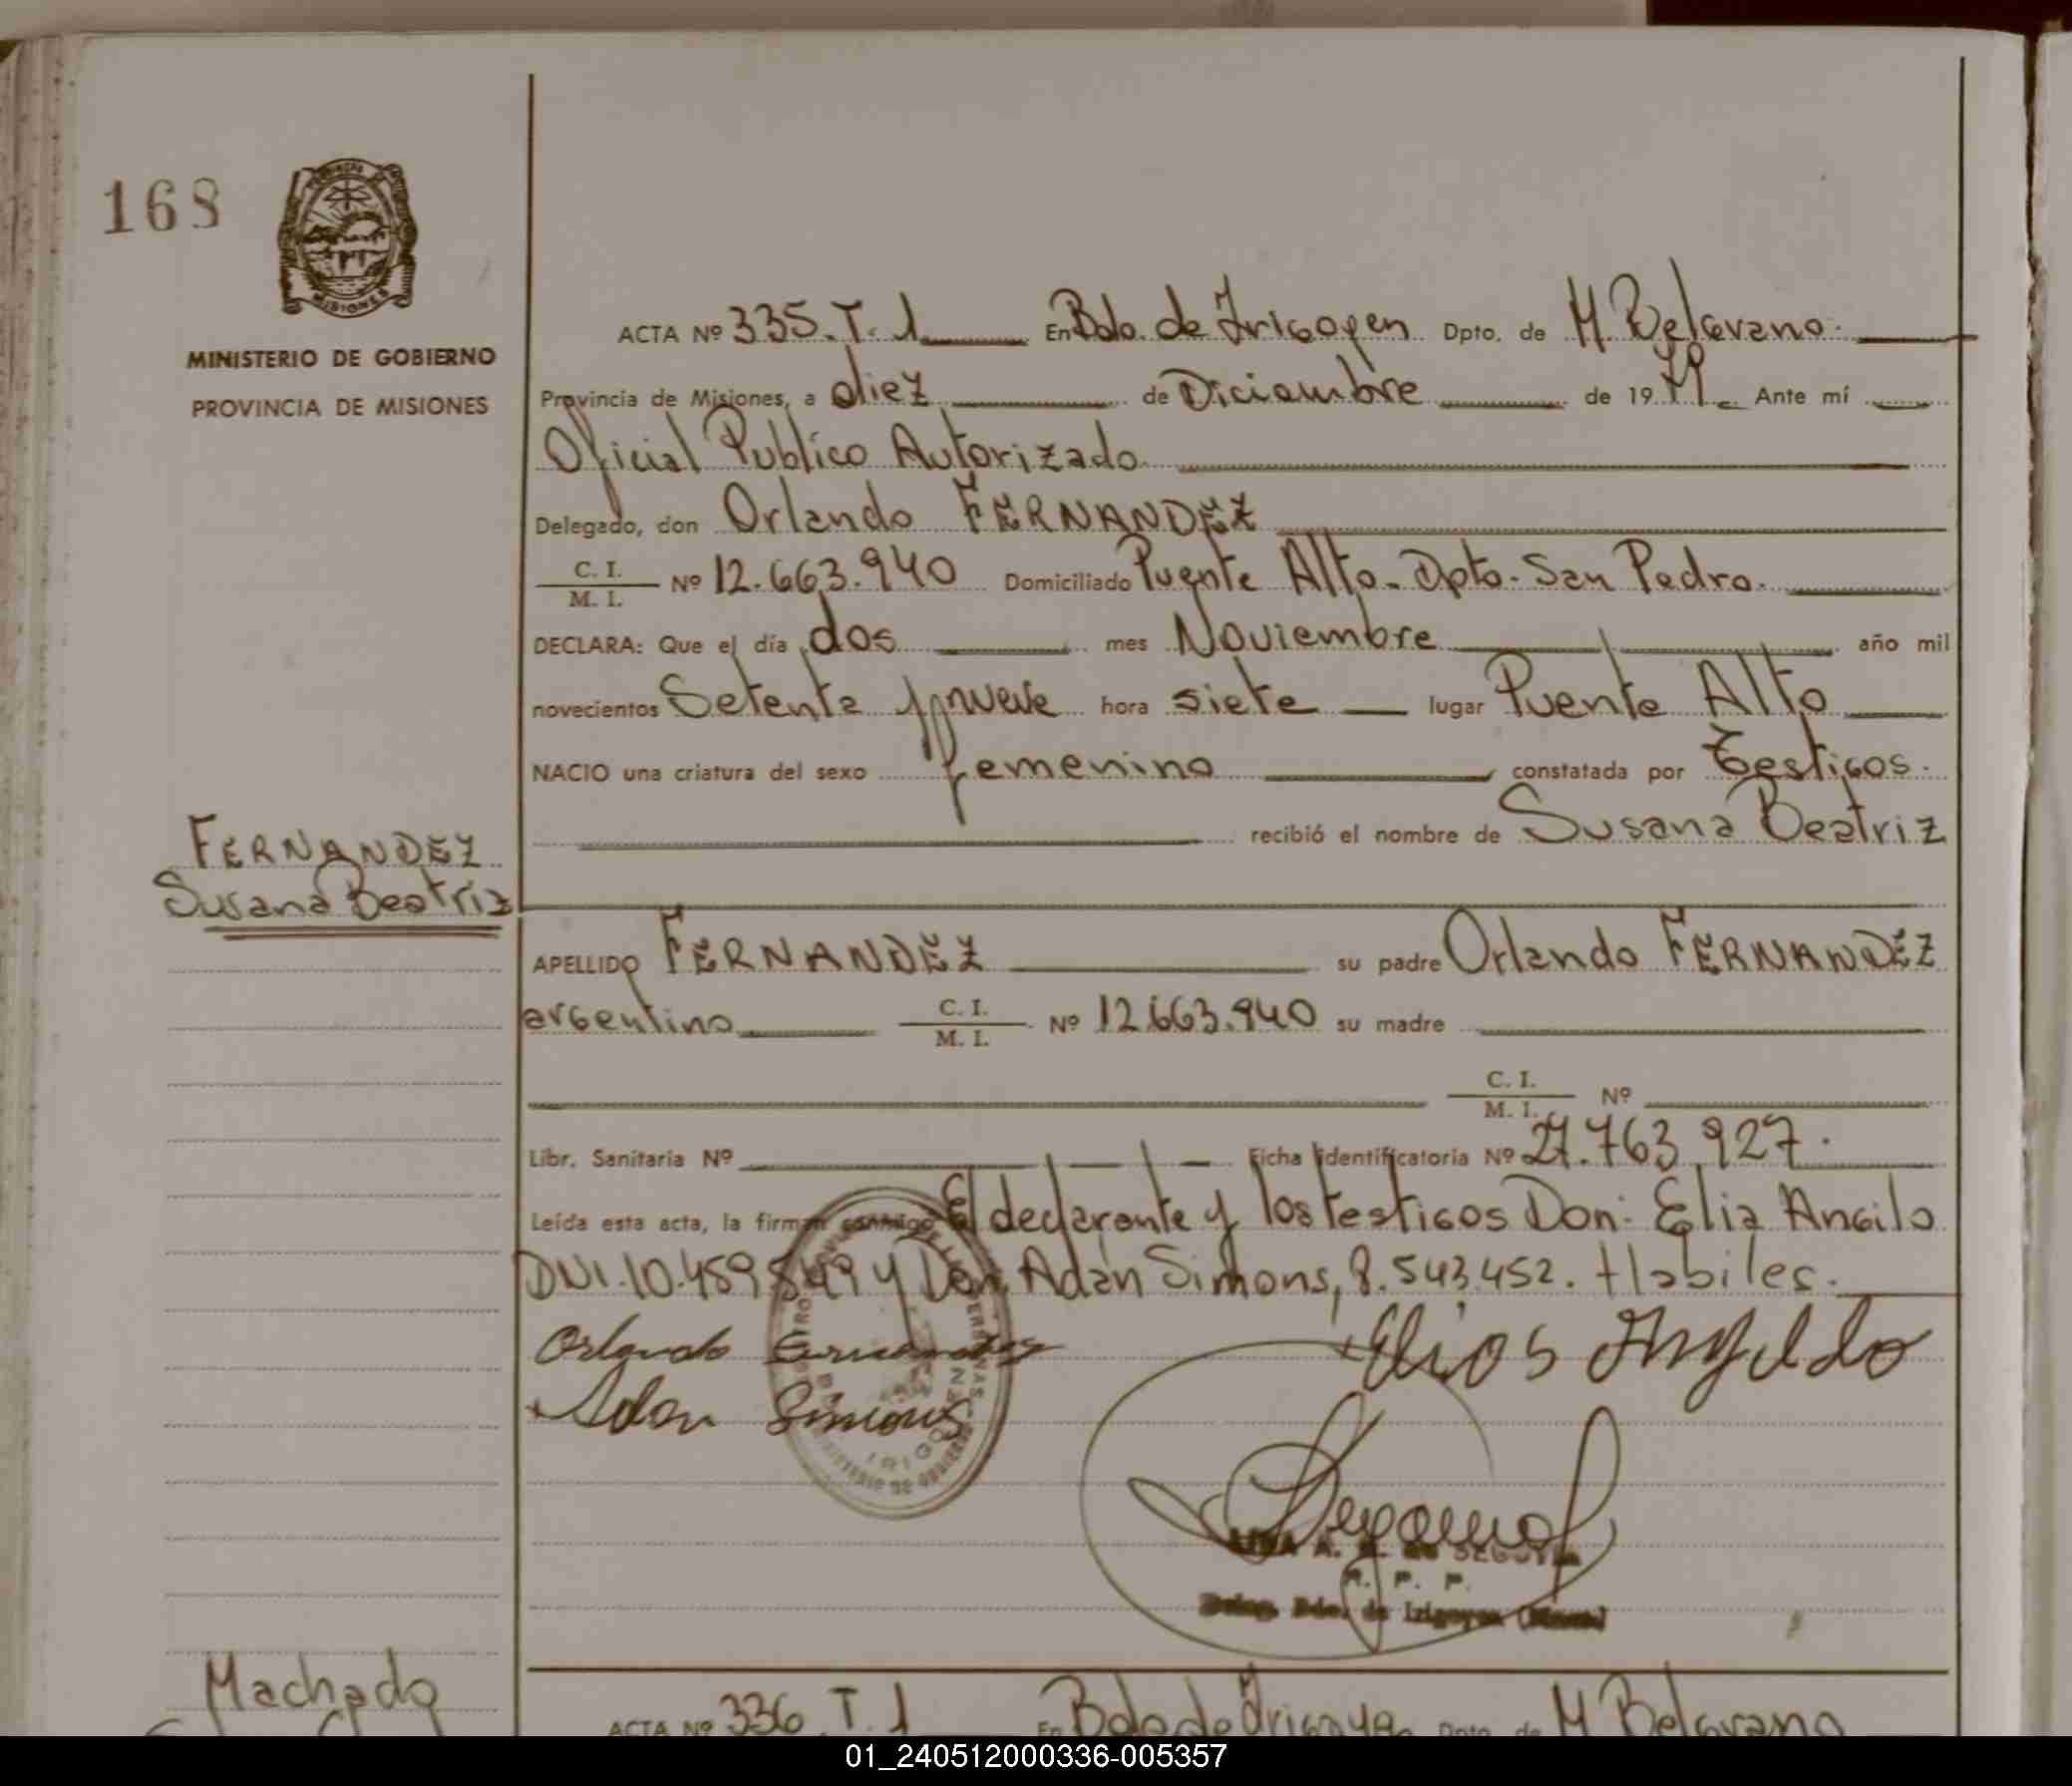 168
MISIONES
MINISTERIO DE GOBIERNO
PROVINCIA DE MISIONES
ACTA Nº 335. T. 1 En Bdo. de Irigoyen Dpto. de M. Belgrano.
Provincia de Misiones, a diez de Diciembre de 1979. Ante mí
Oficial Publico Autorizado.
Delegado, don Orlando FERNANDEZ
C. I. / M. I. Nº 12.663.940 Domiciliado Puente Alto. Dpto. San Pedro.
DECLARA: Que el día dos mes Noviembre año mil
novecientos Setenta y nueve hora siete lugar Puente Alto
NACIO una criatura del sexo femenino constatada por Testigos.
recibió el nombre de Susana Beatriz
FERNANDEZ
Susana Beatriz
APELLIDO FERNANDEZ su padre Orlando FERNANDEZ
argentino C. I. / M. I. Nº 12.663.940 su madre
C. I. / M. I. Nº
Libr. Sanitaria Nº Ficha Identificatoria Nº 27.763.927.
Leída esta acta, la firman conmigo El declarante y los testigos Don: Elia Angilo
DNI. 10.459.849 y Don Adán Simons, 8.543.452. Habiles.
Orlando Fernandez Elios Angildo
Adan Simons
IRIGOYEN
A. DE SEGOVIA
P. P.
Deleg. Bdo. de Irigoyen (Mnes)
Machado
ACTA Nº 336 T. 1 En Bdo de Irigoyen Dpto. de M Belgrano
01_240512000336-005357